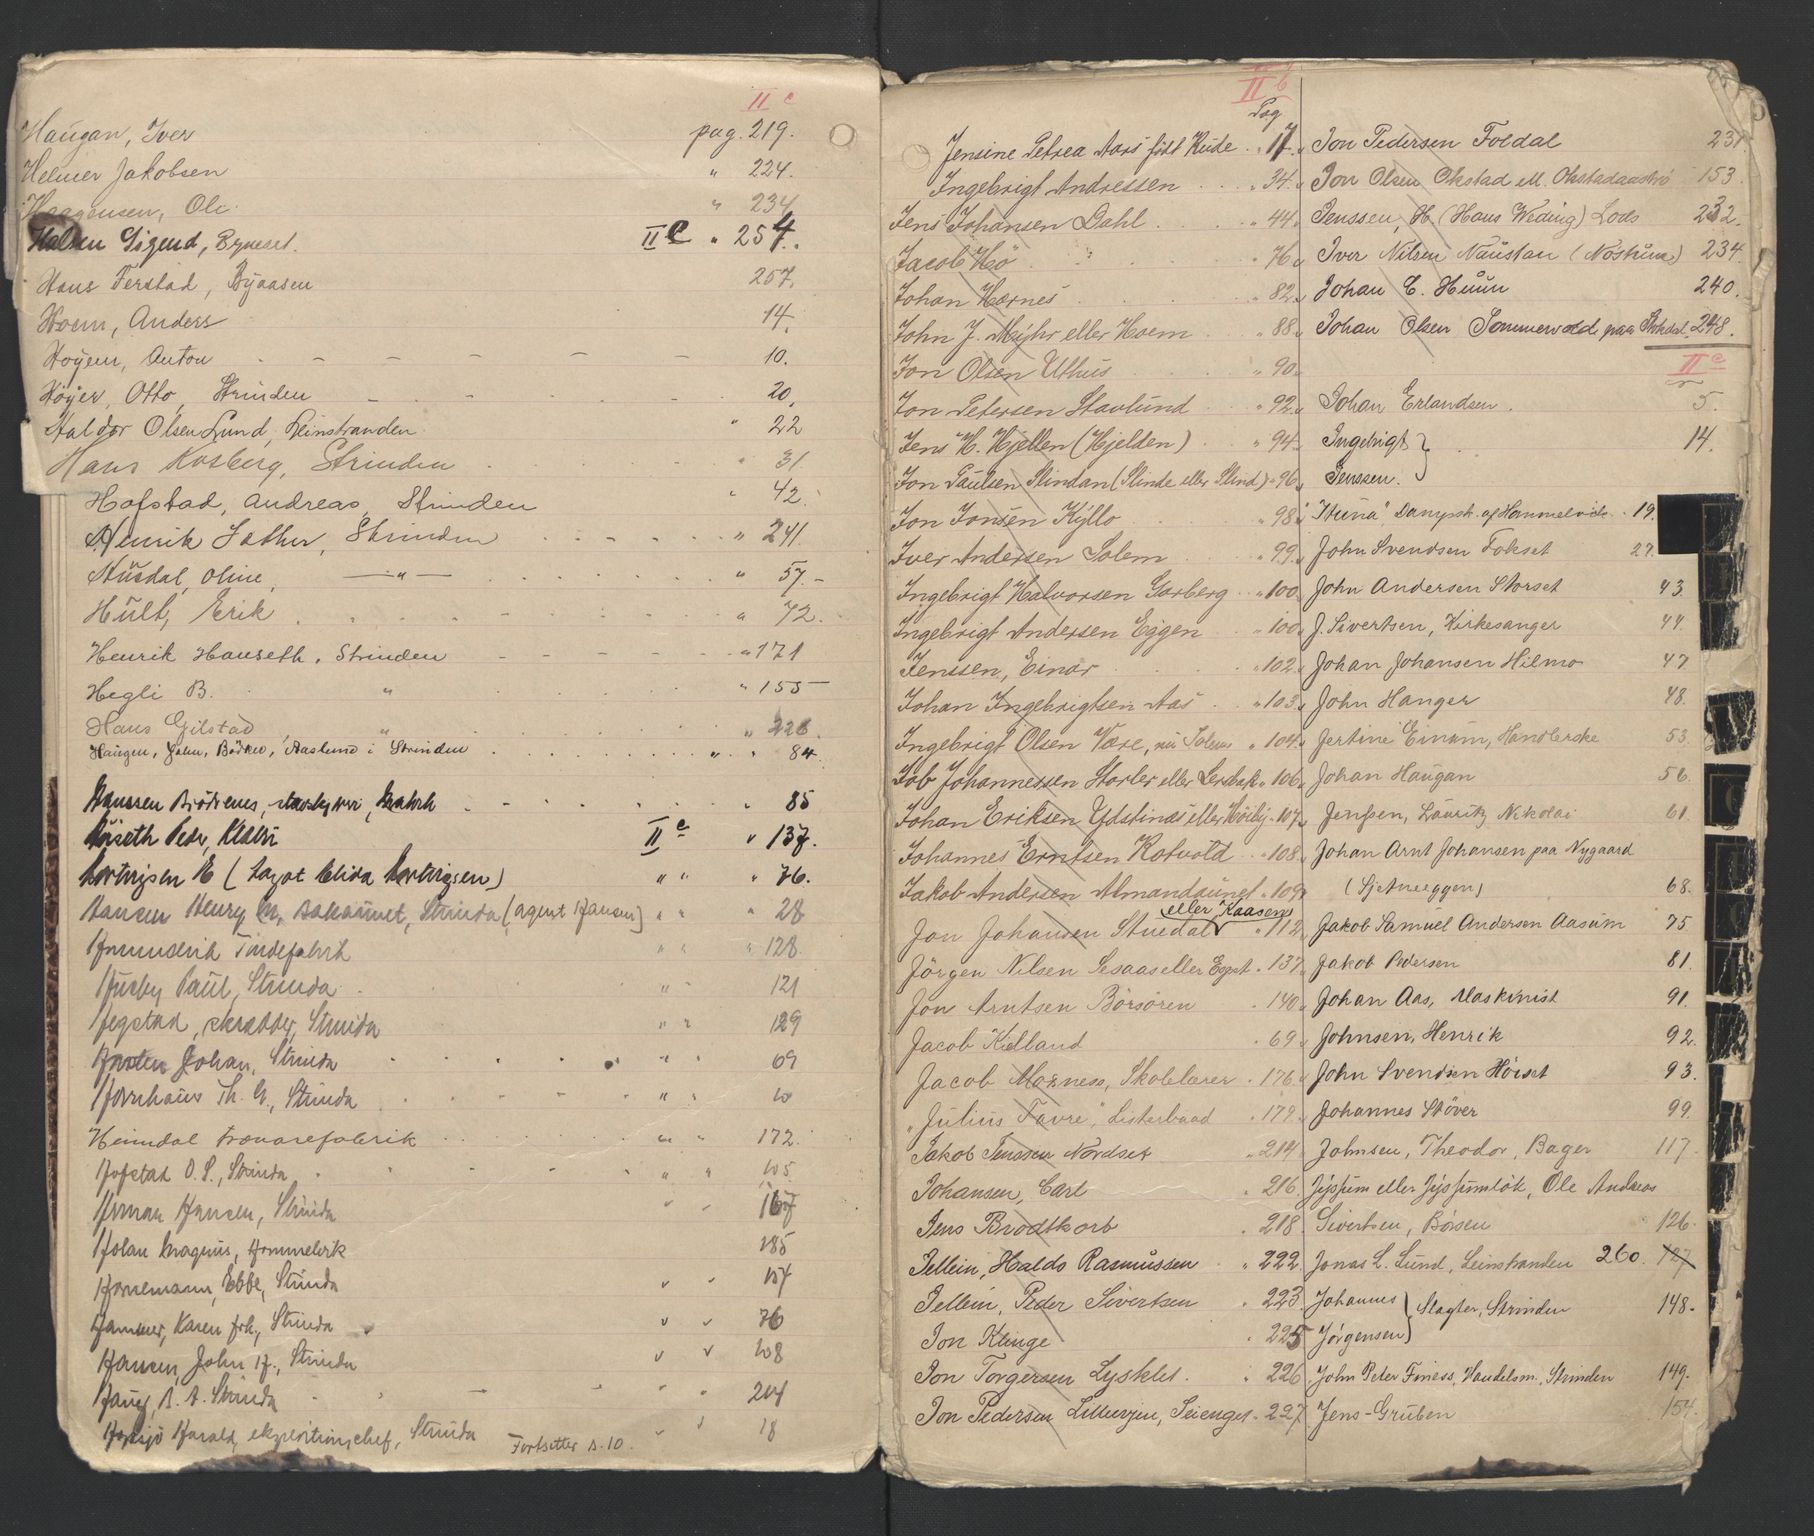 II c
Haugan, Iver pag. 219.
Helmer Jakobsen " 224.
Haagensen, Ole " 234
Halsen Sigurd, Byneset. II C " 254.
Hans Ferstad, Byaasen 257.
Hoem, Anders 14.
Høyem, Anton 10.
Høyer, Otto, Strinden 20.
Haldor Olsen Lund, Leinstranden " 22
Hans Rosberg, Strinden " 31.
Hofstad, Andreas, Strinden " 42.
Henrik Sather, Strinden " 241.
Husdal, Oline, —"— " 57.-
Hult, Erik " 72.
Henrik Hauseth, Strinden " 171
Hegli B. " " 155
Hans Gilstad " " 226.
Haugen, John, Bødker, Aaslund i Strinden " " 84.
Hanssen Brødrenes, " 85
Peder, Klæbu II c " 137.
E ( " " " 76.
Hansen Henry M, Bakaunet, Strinda (agent Hansen) " " " 28
Tindefabrik " " " 128.
Husby Paul, Strinda " " 121
Hegstad, skrædder, Strinda " " 129
Johan, Strinda " " 69
Hornhaus Th. G., Strinda " "
Heimdal trævarefabrik " " 172.
Hofstad O. S., Strinda " " 105
Herman Hansen, Strinda " " 167
Holan Magnus, Hommelvik 185
Hornemann, Ebbe, Strinda " " 154
Hammer, Karen frk., Strinda " " 36
Hansen, John H., Strinda " " 108
Haug, B. A. Strinda " " 204
Harald, ekspeditionschef, Strinda " " 18
Fortsetter s. 10.
II b
Pag
Jensine Petrea Aars født Rude " 17.
Ingebrigt Andressen " 34.
Jens Johansen Dahl " 44.
Jacob Hø " 76
Johan Hærnes " 82.
John J. Myhr eller Hoem " 88
Jon Olsen Uthus " 90
Jon Petersen Stavlund " 92.
Jens H. Hjellen (Hjelden) " 94.
Jon Paulsen Slindan (Slinde eller Slind) " 96
Jon Jonsen Kyllo " 98
Iver Andersen Solem " 99.
Ingebrigt Halvorsen Garberg " 100
Ingebrigt Andersen Eggen " 100
Jenssen, Einar " 102
Johan Ingebrigtsen Aas " 103
Ingebrigt Olsen Være, nu Solem " 104
Job Johannessen Storler eller Lerbak " 106
Johan Eriksen Ydstines eller Høiby " 107
Johannes Erntsen Rotvold " 108
Jakob Andersen Almandaunet " 109
eller Kaasen
Jon Johansen Stuedal " 112
Jørgen Nilsen Sesaas eller Egset " 137
Jon Arntsen Børsøren " 140
Jacob Kielland " 69
Jacob Mosness, Skolelærer " 176
"Julius Favre", Listerbaad " 179.
Jakob Jenssen Nordset " 214
Johansen, Carl " 216.
Jens Brodtkorb " 218
Jellein, Haldo Rasmussen " 222
Jellein, Peder Sivertsen " 223
Jon Klinge " 225
Jon Torgersen Lysklet. " 226
Jon Pedersen Lillevjen, Seienget " 227
Jon Pedersen Foldal 231
Jon Olsen Okstad ell. Okstadaustrø 153.
Jenssen, H (Hans Weding) Lods 232.
Iver Nilsen Naustan (Nostum) 234.
Johan E. Huun 240.
Johan Olsen Sommervold paa 248.
II c
Johan Erlandsen. 5.
Ingebrigt } 14.
Jenssen.
"Huna", Dampsk. af Hommelvik 19.
John Svendsen Fokset 27.
John Andersen Storset 43.
J. Sivertsen, Kirkesanger 44
Johan Johansen Hilmo 47
John Hanger 48.
Jertine Einum, Handlerske 53.
Johan Haugan 56.
Jenssen, Lauritz Nikolai 61.
Johan Arnt Johansen paa Nygaard
(Sjetneeggen) 68.
Jakob Samuel Andersen Aasum 75
Jakob Pedersen 81.
Johan Aas, Maskinist 91.
Johnsen, Henrik 92.
John Svendsen Høiset 93.
Johannes Støver 99.
Johnsen, Theodor, Bager 117.
Jyssum eller Jyssumløk, Ole Andreas
Sivertsen, Børsen 126.
Jonas L. Lund, Leinstranden 260. 127
Johannes } Slagter, Strinden 148.
Jørgensen
John Peter Finess, Handelsm., Strinden 149.
Jens-Gruben 154.